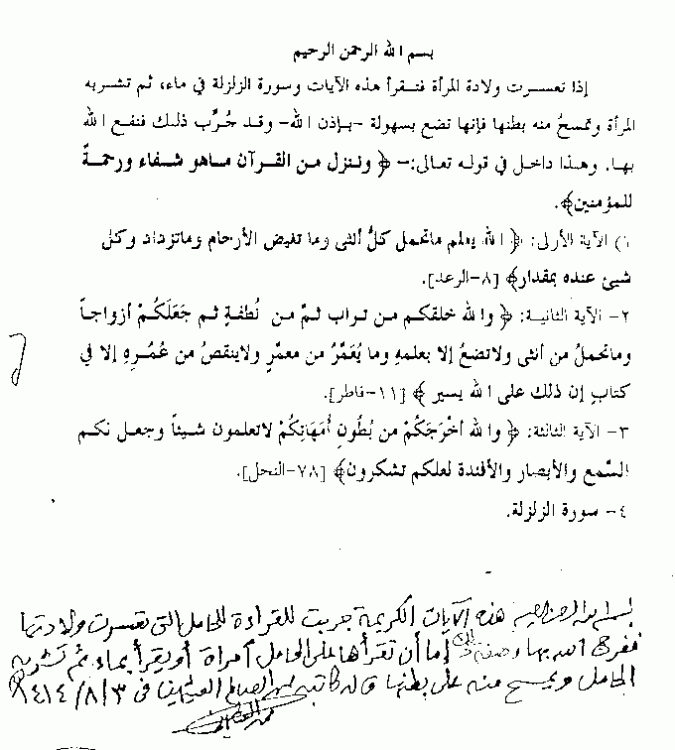 بسم الله الرحمن الرحيم
إذا تعسرت ولادة المرأة فتقرأ هذه الآيات وسورة الزلزلة في ماء، ثم تشربه
المرأة وتمسحُ منه بطنها فإنها تضع بسهولة -بإذن الله- وقد جُرِّب ذلك فنفع الله
بها. وهذا داخل في قوله تعالى:- ﴿ وننزل من القرآن ماهو شفاء ورحمةٌ
للمؤمنين﴾.
١) الآية الأولى: ﴿ الله يعلم ماتحمل كلُّ أنثى وما تغيض الأرحام وماتزداد وكل
شيئ عنده بمقدار﴾ [٨-الرعد].
٢- الآية الثانية: ﴿ والله خلقكم من تراب ثمَّ من نُطفةٍ ثم جَعَلَكُمْ أزواجاً
وماتحملُ من أنثى ولاتضعُ إلا بعلمهِ وما يُعَمَّرُ من معمَّرٍ ولاينقصُ من عُمُرِهِ إلا في
كتابٍ إن ذلك على الله يسير ﴾ [١١-فاطر].
٣- الآية الثالثة: ﴿ والله أخْرَجَكُمْ من بُطُونِ أُمَهَاتِكُمْ لاتعلمون شيئاً وجعل لكم
السَّمع والأبصار والأفئدة لعلكم تشكرون﴾ [٧٨-النحل].
٤- سورة الزلزلة.
بسم الله الرحمن الرحيم هذه الآيات الكريمة جربت للقراءة للحامل التي تعسرت ولادتها
ففرج الله بها وصفة ذلك إما أن تقرأها على الحامل امرأة أو يقرأ بماء ثم تشربه
الحامل ويمسح منه على بطنها قاله كاتبه محمد الصالح العثيمين في ٣/٨/١٤١٤